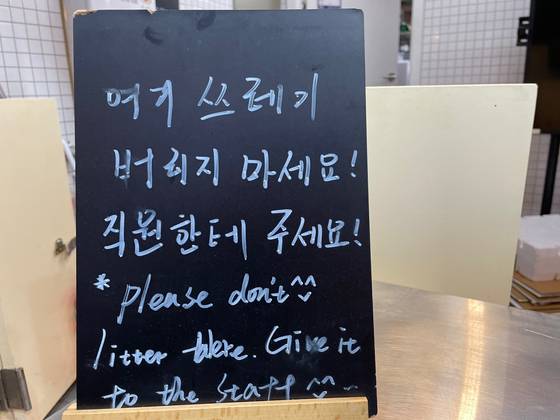 여기 쓰레기
버리지 마세요!
직원한테 주세요!
* please don't ^^
litter here. Give it
to the staff ^^